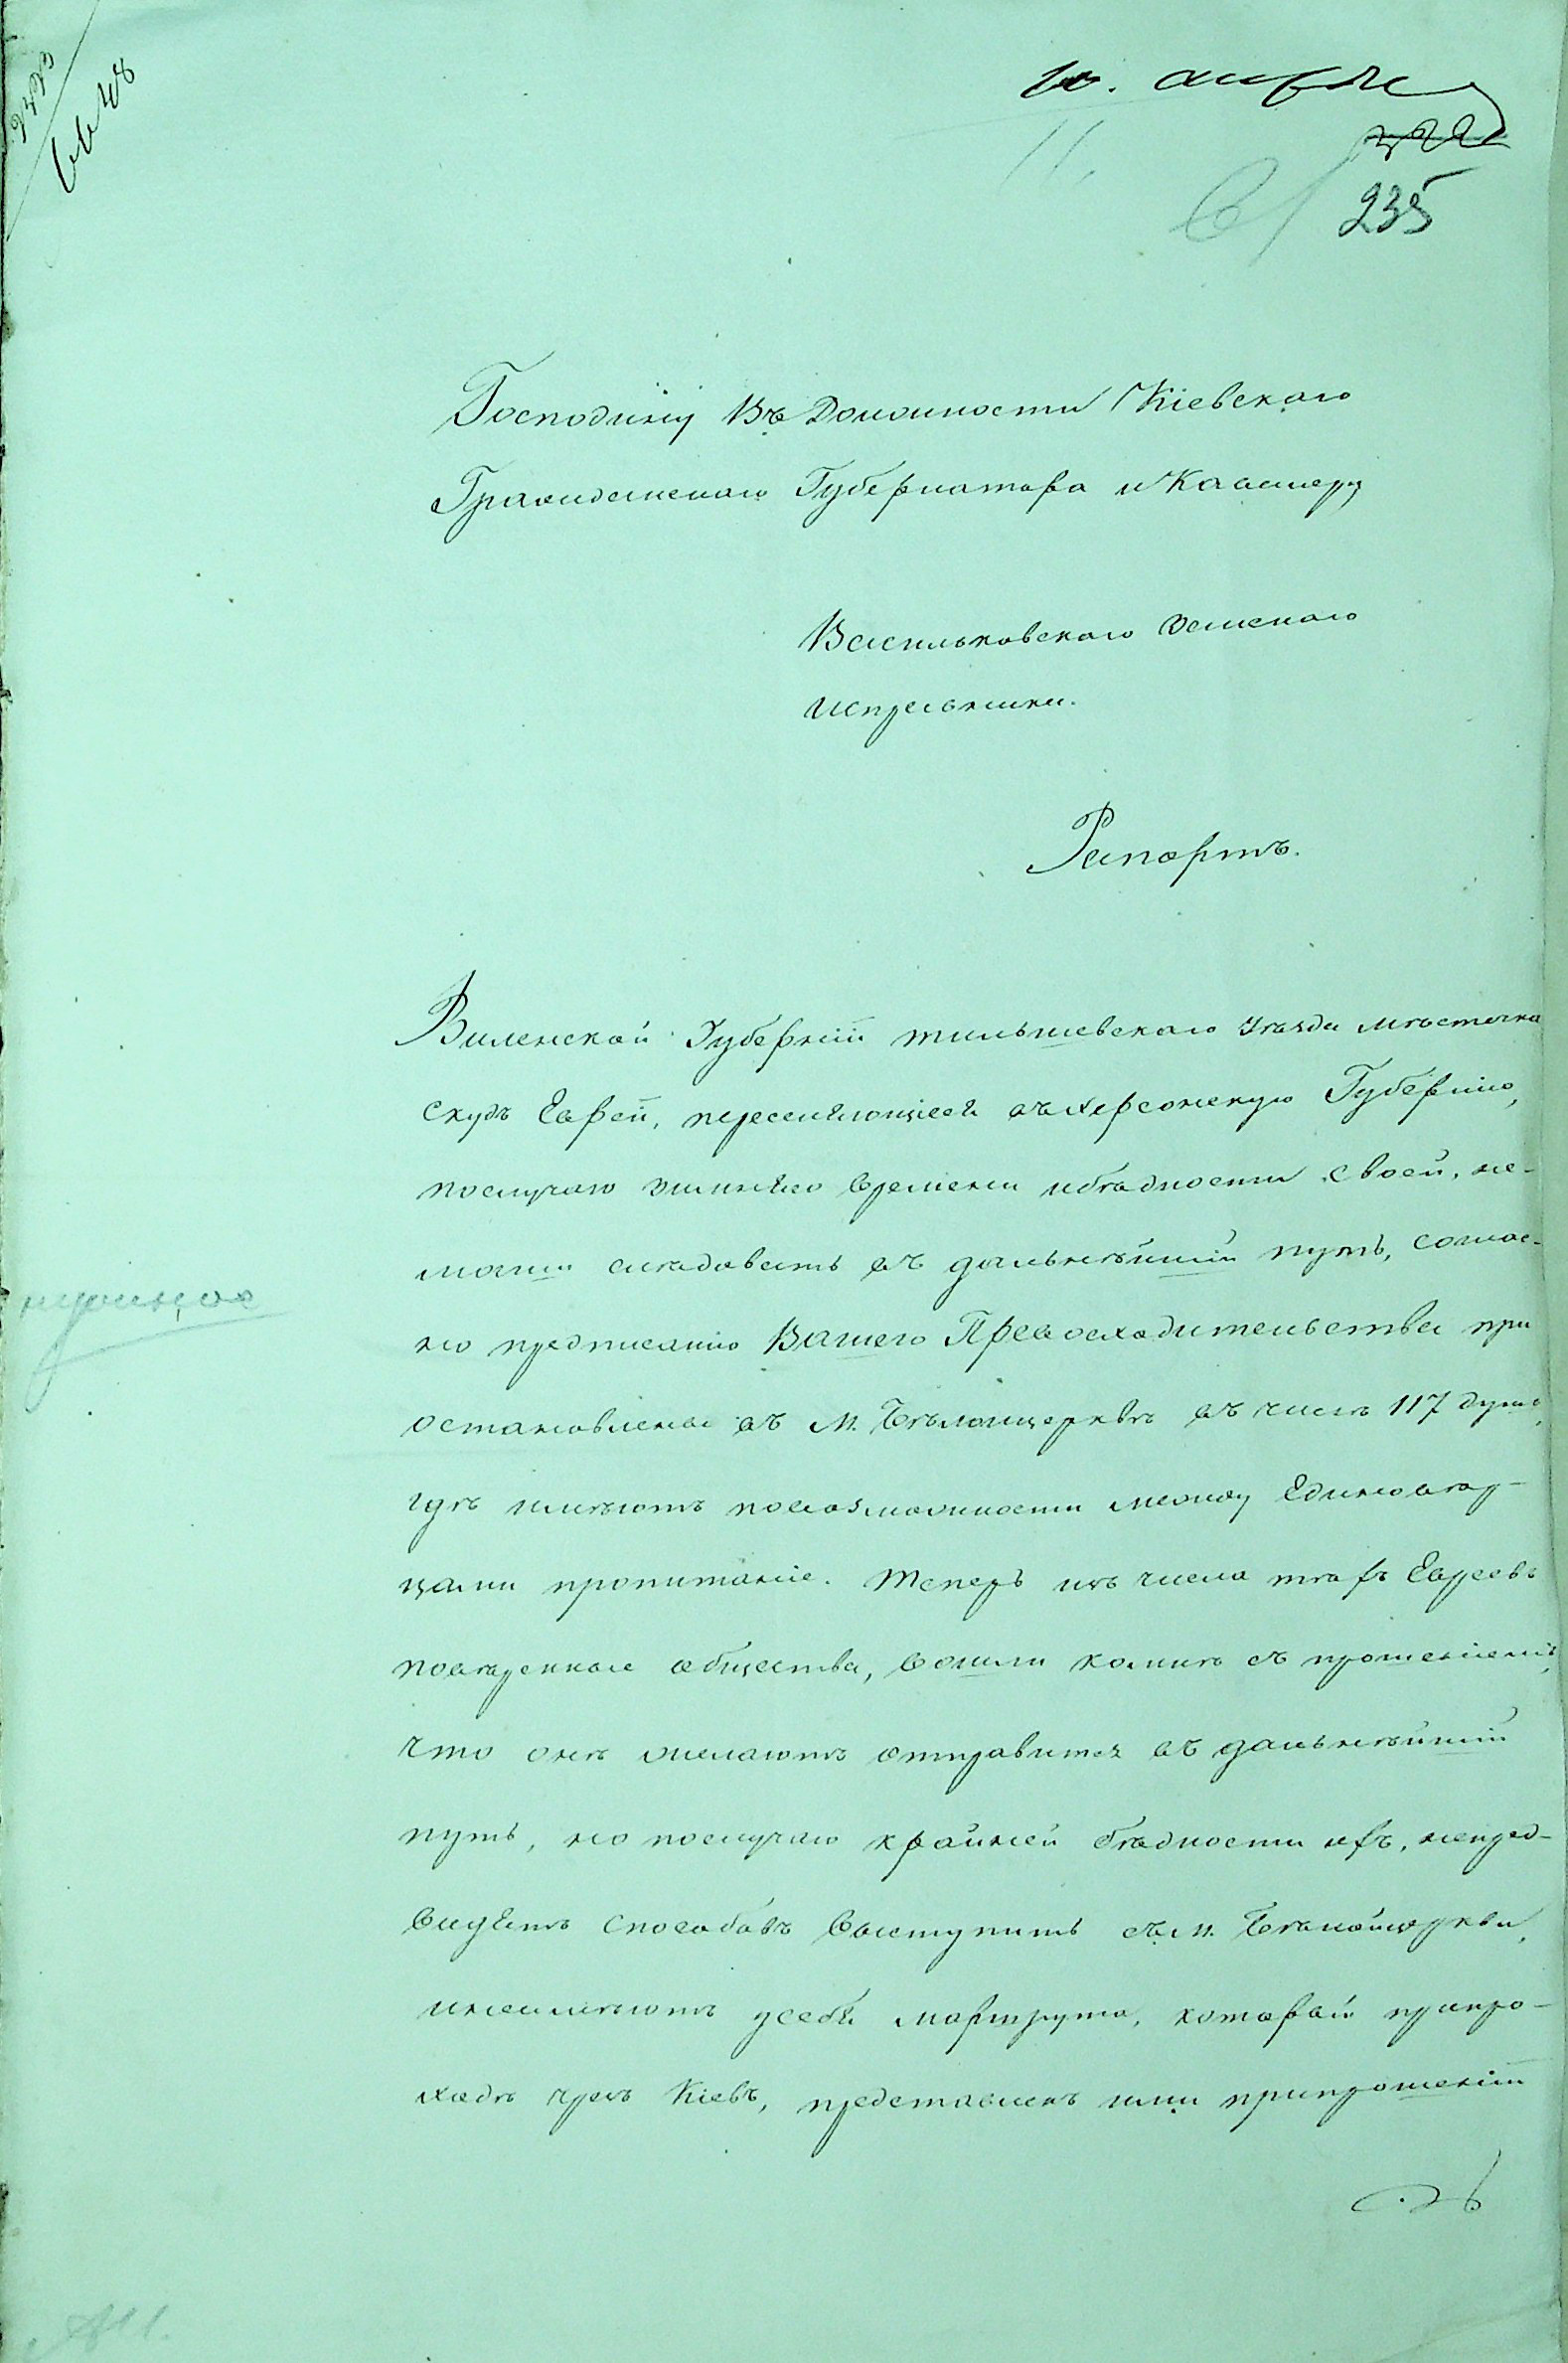 235
Господину Въ Должности Кіевскаго
Гражданскаго Губернатора и Кавалеру
Васильковскаго Земскаго
Исправника.
Рапортъ.
Виленской Губерніи тильшевскаго уѣзда мѣстечка
Скудъ Евреи, переселяющіеся въ Херсонскую Губернію,
послучаю зимняго времени и бѣдности своей, не-
могши слѣдовать въ дальнѣйшій путь, соглас-
но предписанію Вашего Превосходительства при
остановлены въ М. Бѣлоицерквѣ въ числѣ 117 душъ,
гдѣ имѣютъ повозможности между Единовѣр-
цами пропитаніе. Теперь изъ числа тѣхъ Евреевъ
повѣренные общества, вошли комнѣ съ прошеніемъ,
что онѣ желаютъ отправится въ дальнѣйшій
путь, но послучаю крайней бѣдности ихъ, непред-
видятъ способовъ выступить съ м. Бѣлойцеркви,
инеимѣютъ усебя маршрута, который припро-
ходѣ чрезъ Кіевъ, представленъ ими припрошеніи